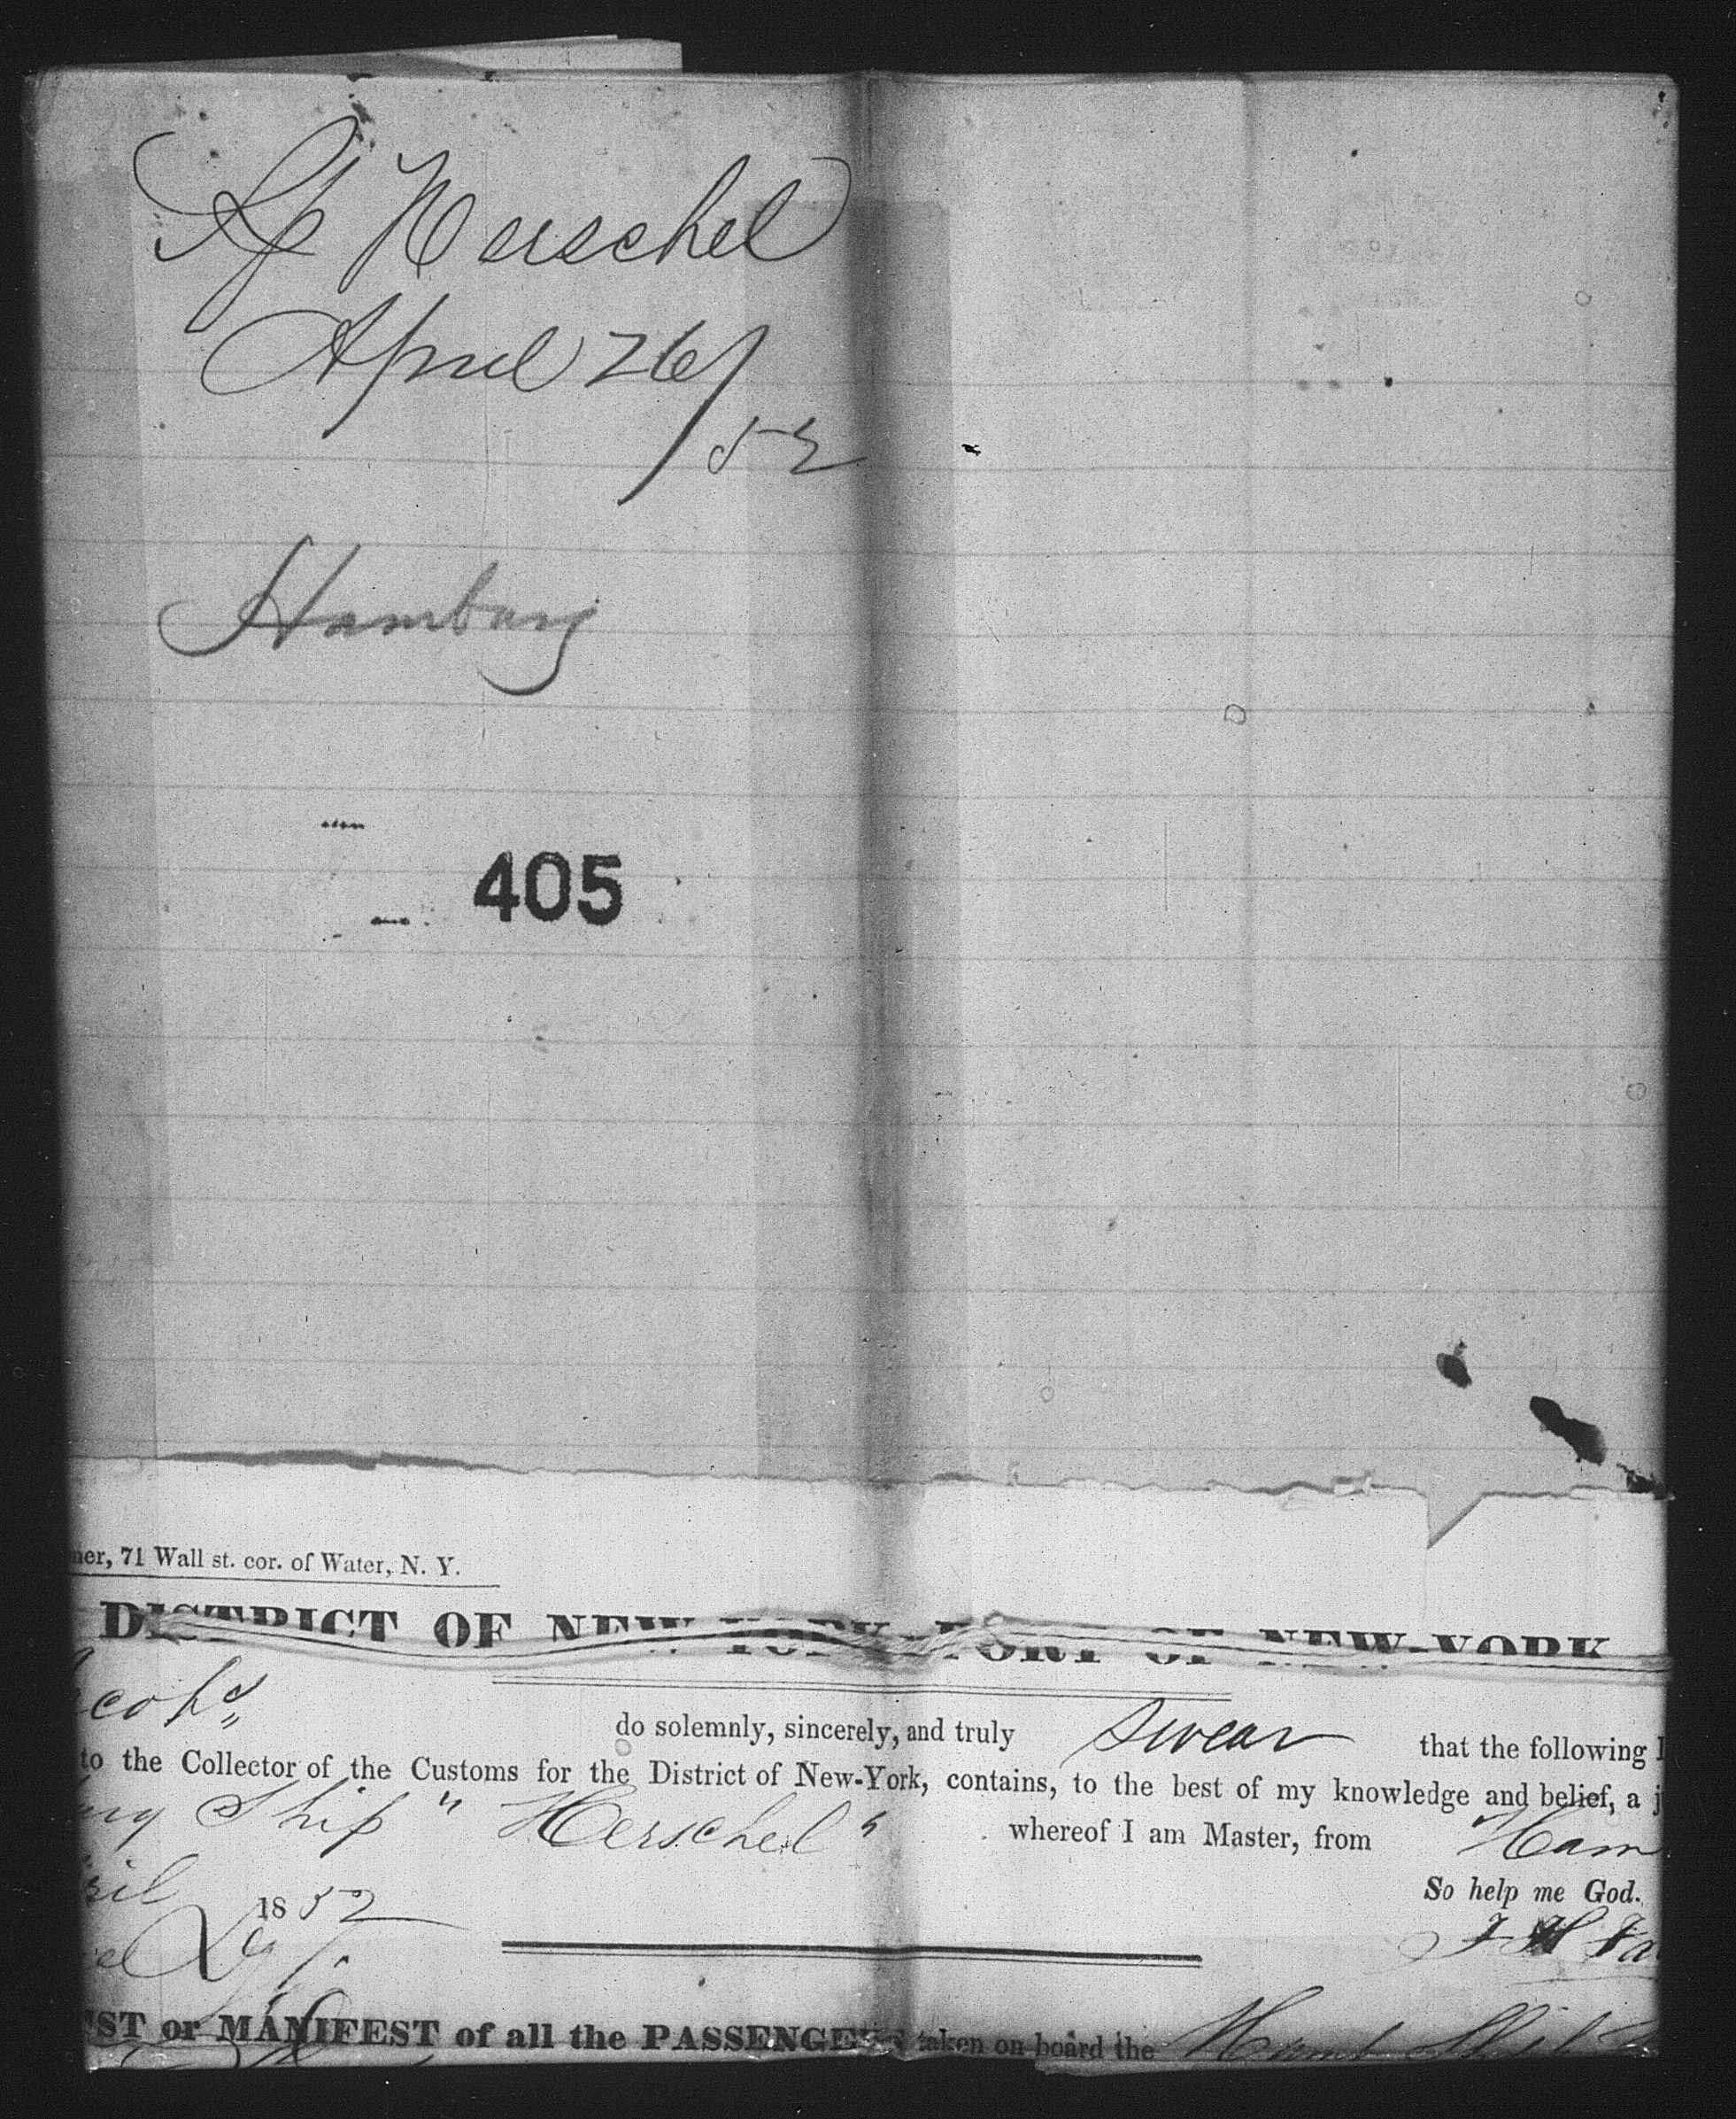 Sp Herschel
April 26/52
Hamburg
405
ner, 71 Wall st. cor. of Water, N. Y.
DISTRICT OF NEW-YORK—PORT OF NEW-YORK
do solemnly, sincerely, and truly swear that the following
to the Collector of the Customs for the District of New-York, contains, to the best of my knowledge and belief, a j
Ship "Herschel" whereof I am Master, from Ham
ril 1852 So help me God.
EST or MANIFEST of all the PASSENGERS taken on board the